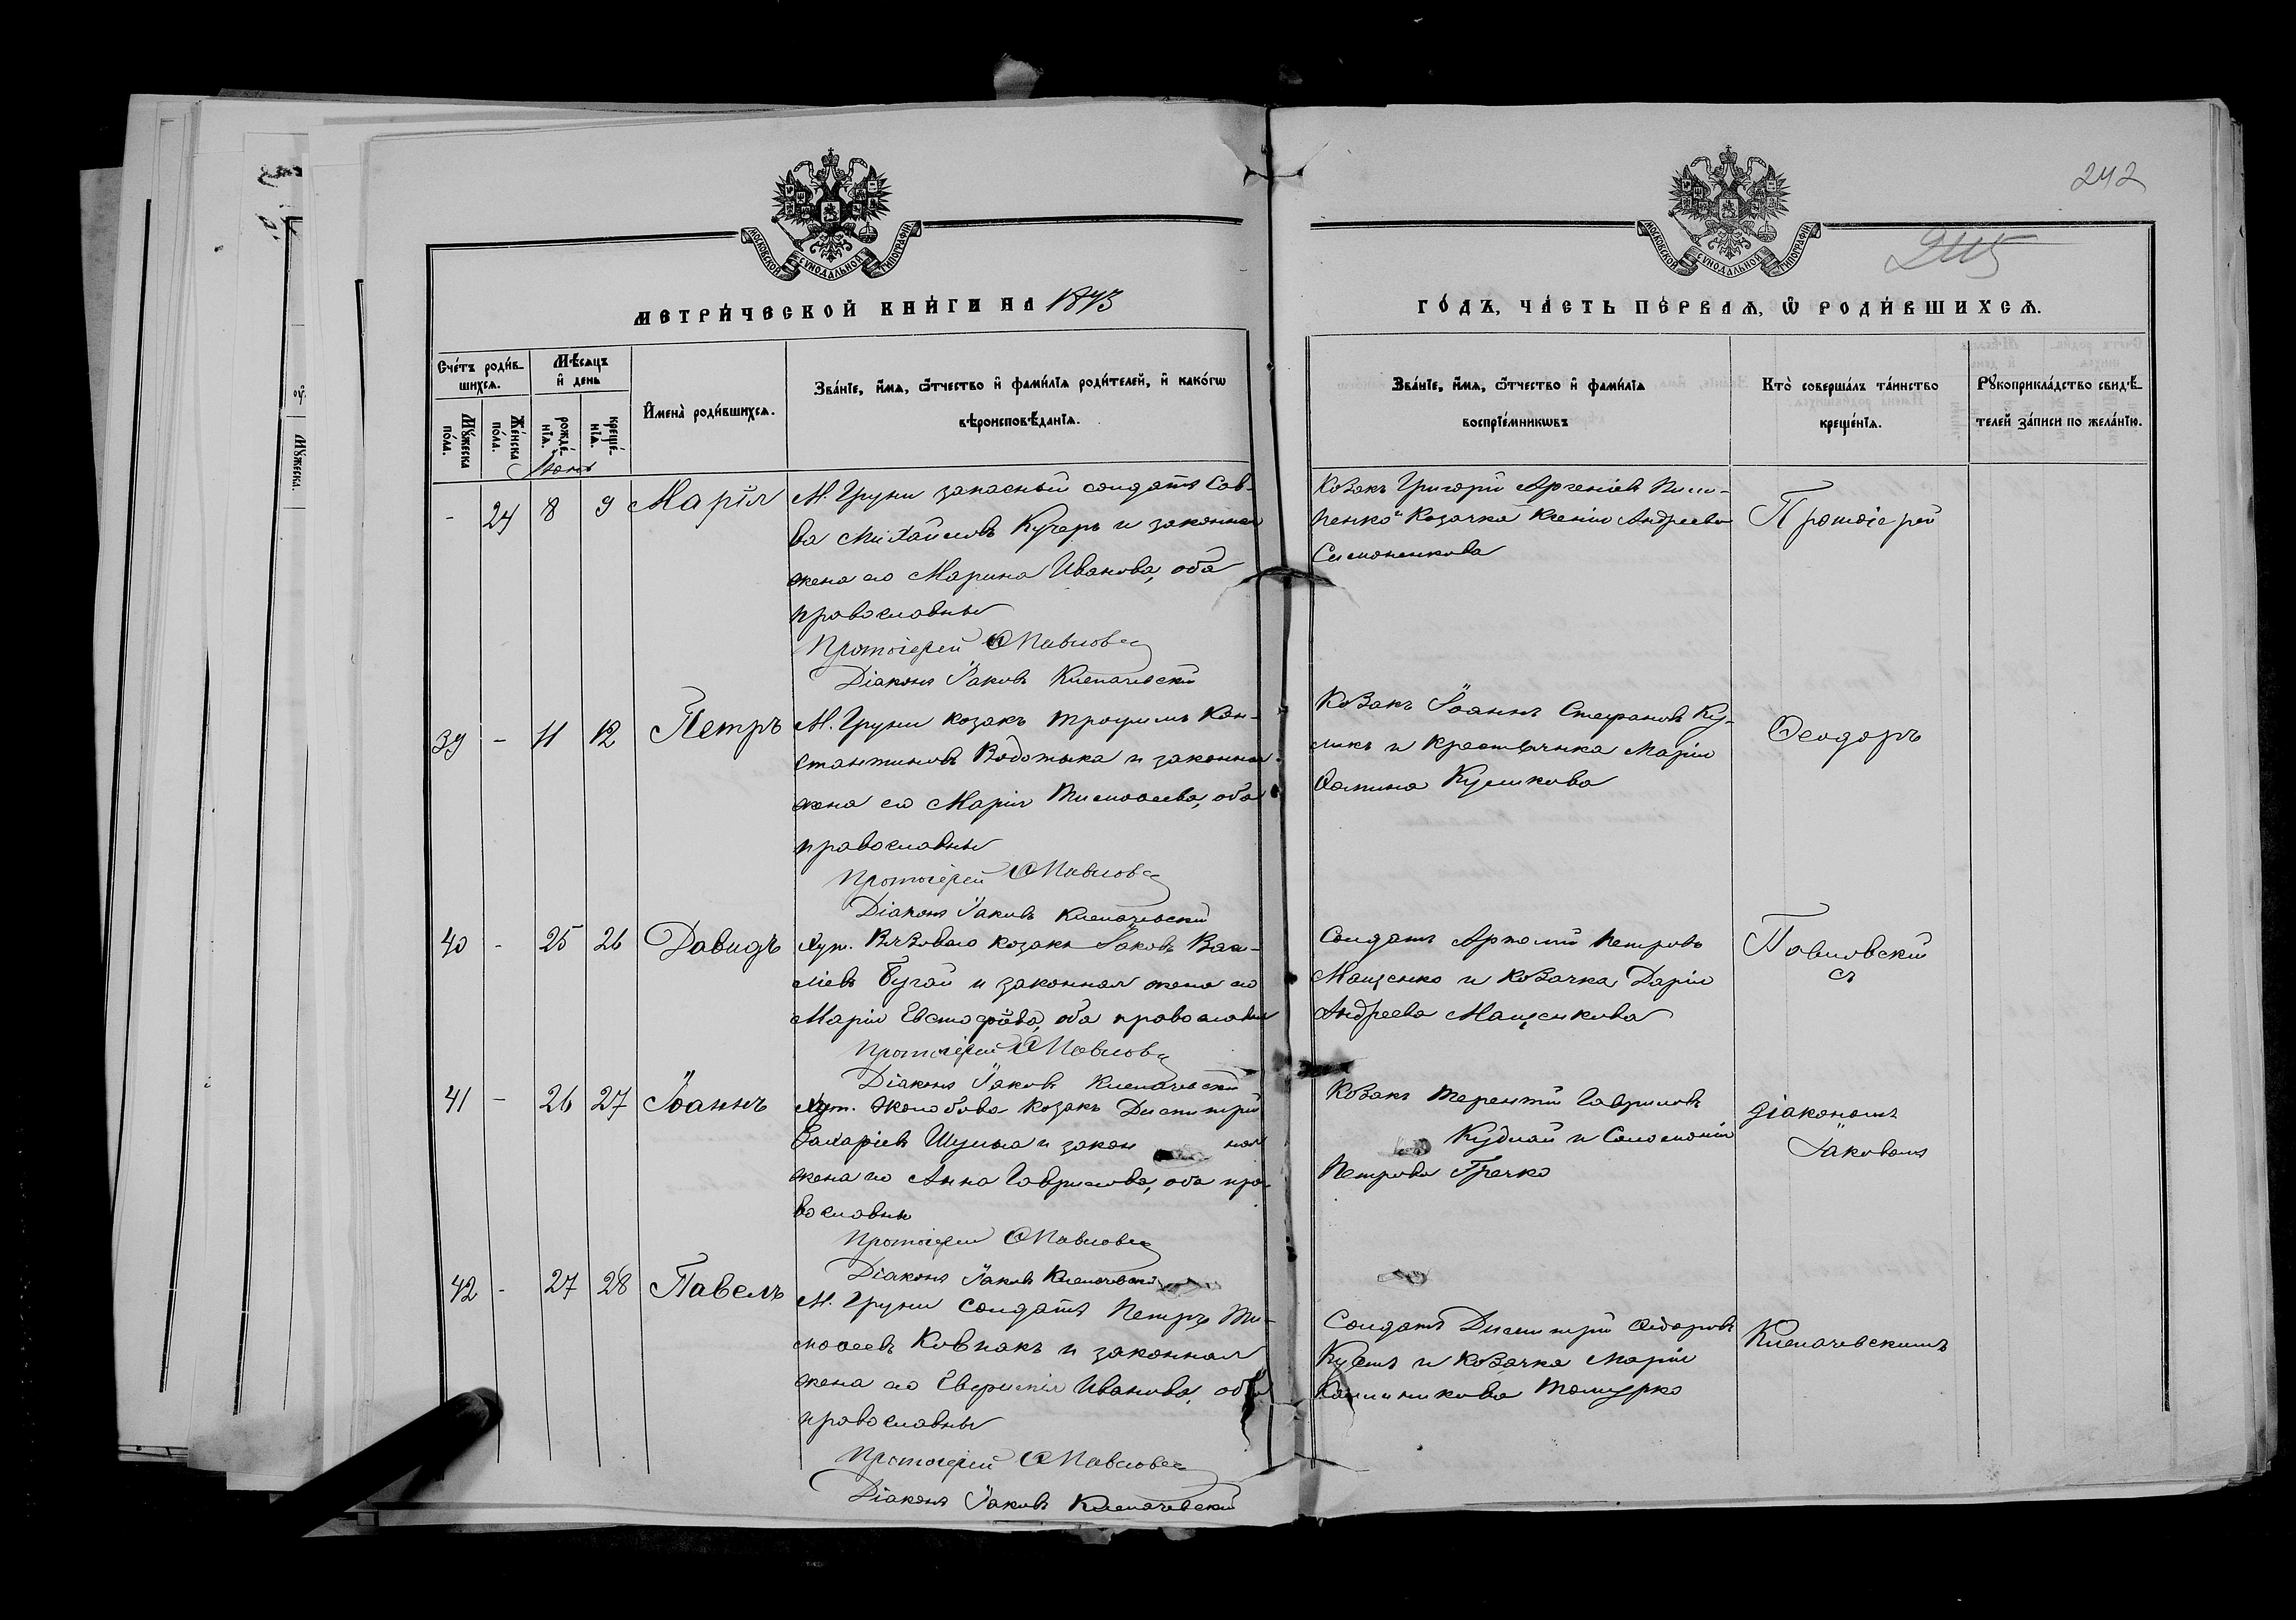 242
245
МОСКОВСКОЙ СѴНОДАЛЬНОЙ ТИПОГРАФІИ
МОСКОВСКОЙ СѴНОДАЛЬНОЙ ТИПОГРАФІИ
МЕТРИ́ЧЕСКОЙ КНИ́ГИ НА 1873
ГО́ДЪ, ЧА́СТЬ ПЕ́РВАѦ, Ѿ РОДИ́ВШИХСѦ.
Сче́тъ роди́в-
шихсѧ.
Мѣ́сѧцъ
и҆ день
И҆мена̀ роди́вшихсѧ.
Зва́нїе, и҆́мѧ, ѻ҆́тчество и҆ фамі́лїѧ роди́телей, и҆ како́гѡ
вѣроисповѣ́данїѧ.
Мꙋ́жеска по́ла.
Же́нска по́ла.
рожде́нїѧ.
креще́нїѧ.
Зва́нїе, и҆́мѧ, ѻ҆́тчество и҆ фамі́лїѧ
воспрїе́мникѡвъ
Кто̀ соверша́лъ та́инство
креще́нїѧ.
Рꙋкоприкла́дство свидѣ́-
телей за́писи по жела́нїю.
- 24 8 9 Марія
М. Груни запасный солдатъ Сав-
ва Михайловъ Кучеръ и законная
жена его Марина Иванова, оба
православны
Протоіерей Ѳ Павловс
Діаконъ Іаковъ Клепачевскій
Козакъ Григорій Арсеніевъ Пили-
пенко Козачка Ксенія Андреева
Симоненкова
Протоіерей
39 - 11 12 Петръ
М. Груни козакъ Трофимъ Кон-
стантиновъ Водотыка и законная
жена его Марія Тимоѳеева, оба
православны
Протоіерей Ѳ Павловс
Діаконъ Іаковъ Клепачевскій
Козакъ Іоаннъ Стефановъ Ку-
ликъ и крестьянка Марія
Ѳомина Куликова
Ѳеодоръ
40 - 25 26 Давидъ
Хут. козакъ Іаковъ Васи-
ліевъ Бугай и законная жена его
Марія Евстафіева, оба православны
Протоіерей Ѳ Павловс
Діаконъ Іаковъ Клепачевскій
Солдатъ Петровъ
Мащенко и Козачка Дарія
Андреева Мащенкова
Павловскій
съ
41 - 26 27 Іоаннъ
Хут. козакъ Димитрій
Захаріевъ Шульга и закон ная
жена его Анна Гаврилова, оба пра-
вославны
Протоіерей Ѳ Павловс
Діаконъ Іаковъ Клепачевскій
Козакъ Терентій Гавриловъ
Кудлай и Соломонія
Петрова Гречко
діакономъ
Іаковомъ
42 - 27 28 Павелъ
М. Груни солдатъ Петръ Ти-
моѳеевъ Ковпакъ и законная
жена его Евфимія Иванова, оба
православны
Протоіерей Ѳ Павловс
Діаконъ Іаковъ Клепачевскій
Солдатъ Димитрій Ѳедоровъ
и Козачка Марія
Клепачевскимъ